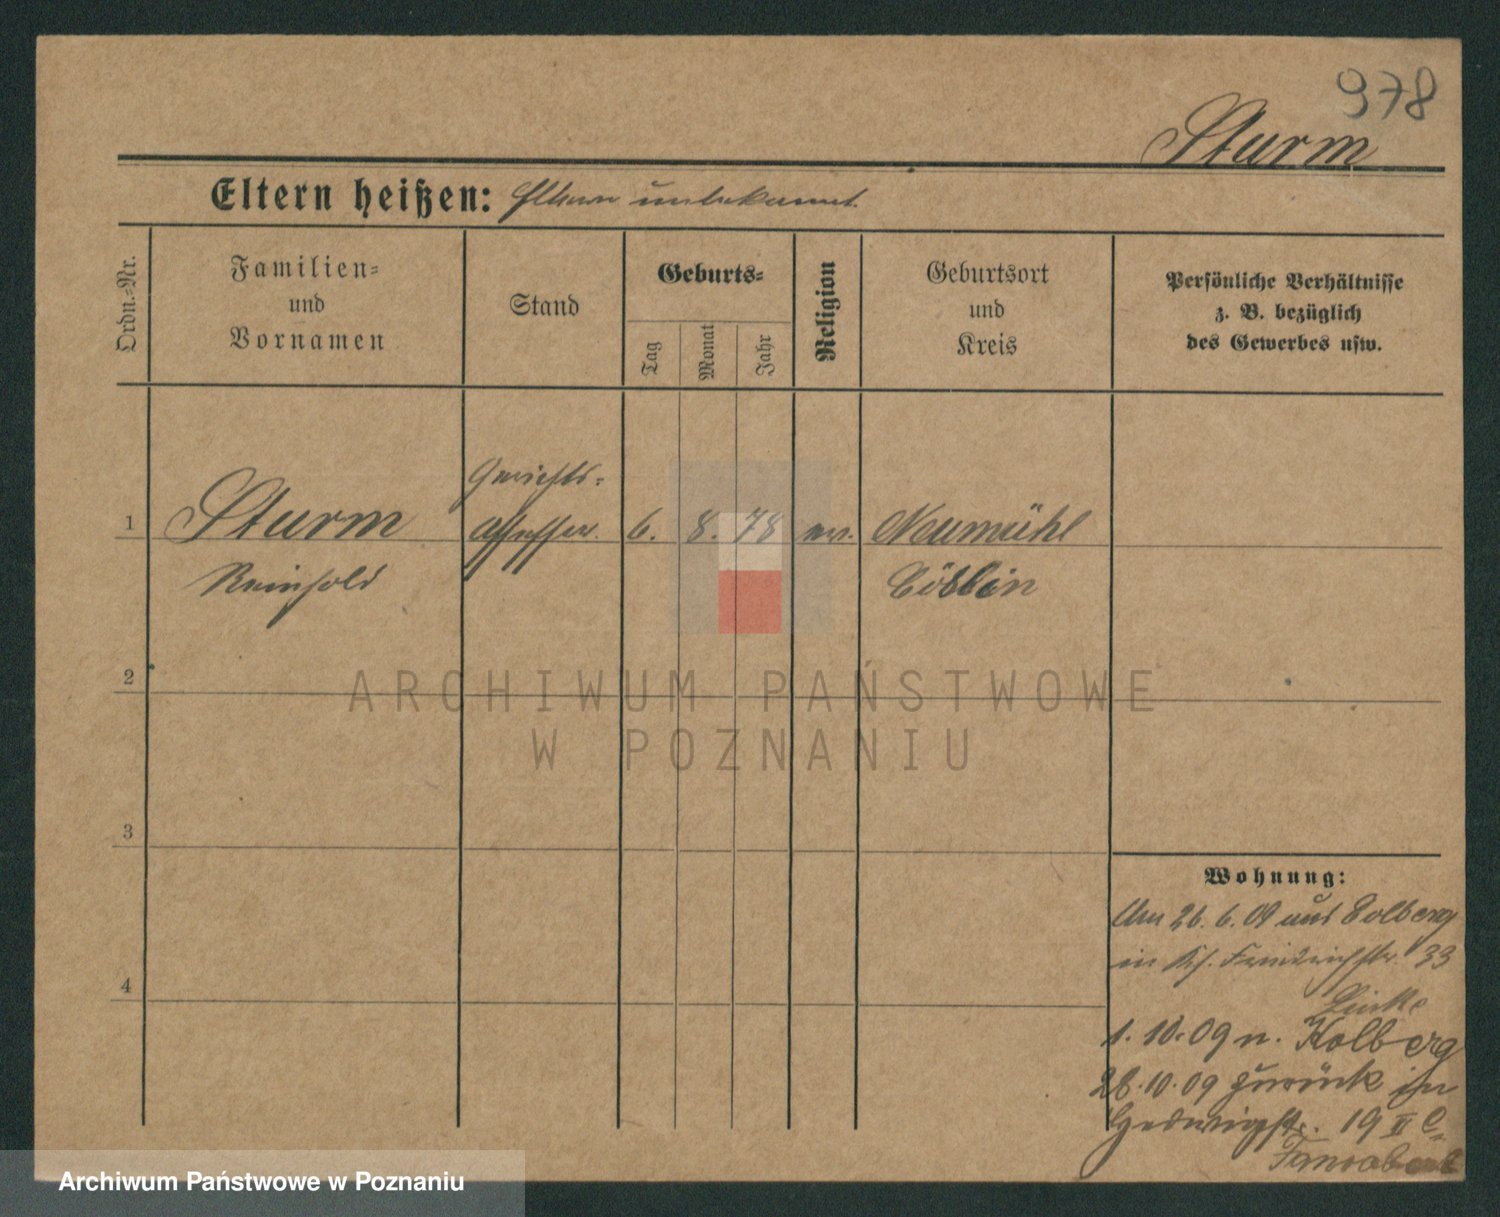 978
Sturm
Eltern heißen: Eltern unbekannt.
Ordn.-Nr.
Familien-
und
Vornamen
Stand
Geburts-
Tag
Monat
Jahr
Religion
Geburtsort
und
Kreis
Persönliche Verhältnisse
z. B. bezüglich
des Gewerbes usw.
Gerichts-
1 Sturm Assessor. 6. 8. 78 ev. Neumühl
Reinhold Cöslin
2
3
4
ARCHIWUM PAŃSTWOWE
W POZNANIU
Wohnung:
Am 26. 6. 09 aus Colberg
in Friedrichstr. 33
Linke
1. 10. 09 n. Kolberg
28. 10. 09 zurück in
Hedwigstr. 19 II
Archiwum Państwowe w Poznaniu